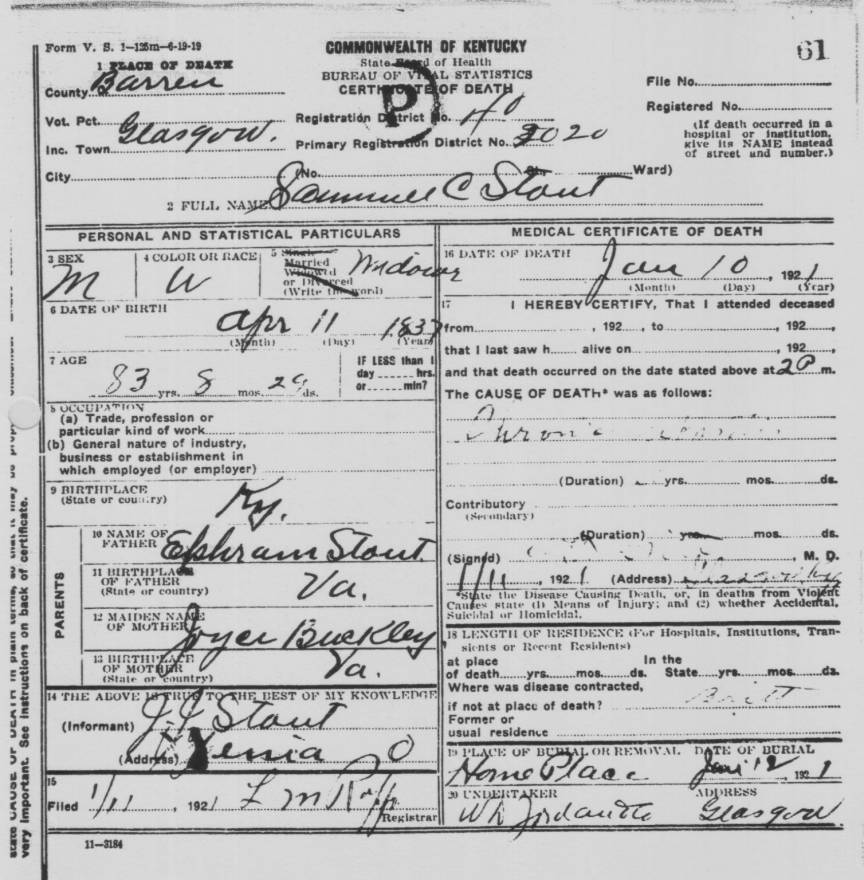 Form V. S. 1-125m-6-19-19
COMMONWEALTH OF KENTUCKY
61
State Board of Health
BUREAU OF VITAL STATISTICS
CERTIFICATE OF DEATH
P
1 PLACE OF DEATH
County Barren
Vot. Pct.
Glasgow.
Inc. Town
City
Registration District No. 40
Primary Registration District No. 2020
(No. St. Ward)
File No.
Registered No.
(If death occurred in a
hospital or institution,
give its NAME instead
of street and number.)
2 FULL NAME Sammuel C Stout
PERSONAL AND STATISTICAL PARTICULARS
3 SEX
M
4 COLOR OR RACE
W
5 Single
Married
Widowed
or Divorced
(Write the word)
Widower
6 DATE OF BIRTH
Apr 11 1837
(Month) (Day) (Year)
7 AGE
83 yrs. 8 mos. 29 ds.
IF LESS than 1
day hrs.
or min?
8 OCCUPATION
(a) Trade, profession or
particular kind of work
(b) General nature of industry,
business or establishment in
which employed (or employer)
9 BIRTHPLACE
(State or country)
Ky.
PARENTS
10 NAME OF
FATHER Ephram Stout
11 BIRTHPLACE
OF FATHER
(State or country)
Va.
12 MAIDEN NAME
OF MOTHER Joyce Buckley
13 BIRTHPLACE
OF MOTHER
(State or country)
Va.
14 THE ABOVE IS TRUE TO THE BEST OF MY KNOWLEDGE
(Informant) J. J. Stout
(Address) Xenia O
15
Filed 1/11, 1921 L M
Registrar
11-3184
MEDICAL CERTIFICATE OF DEATH
16 DATE OF DEATH
Jan 10, 1921
(Month) (Day) (Year)
17
I HEREBY CERTIFY, That I attended deceased
from , 192 , to , 192 ,
that I last saw h alive on , 192 ,
and that death occurred on the date stated above at 2P m.
The CAUSE OF DEATH* was as follows:
(Duration) yrs. mos. ds.
Contributory
(Secondary)
(Duration) yrs. mos. ds.
(Signed) , M. D.
1/11, 1921 (Address)
*State the Disease Causing Death, or, in deaths from Violent
Causes state (1) Means of Injury; and (2) whether Accidental,
Suicidal or Homicidal.
18 LENGTH OF RESIDENCE (For Hospitals, Institutions, Tran-
sients or Recent Residents)
at place In the
of death yrs. mos. ds. State yrs. mos. ds.
Where was disease contracted,
if not at place of death?
Former or
usual residence
19 PLACE OF BURIAL OR REMOVAL DATE OF BURIAL
Home Place Jan 12 1921
20 UNDERTAKER ADDRESS
Glasgow
state CAUSE OF DEATH in plain terms, so that it may be
very important. See instructions on back of certificate.